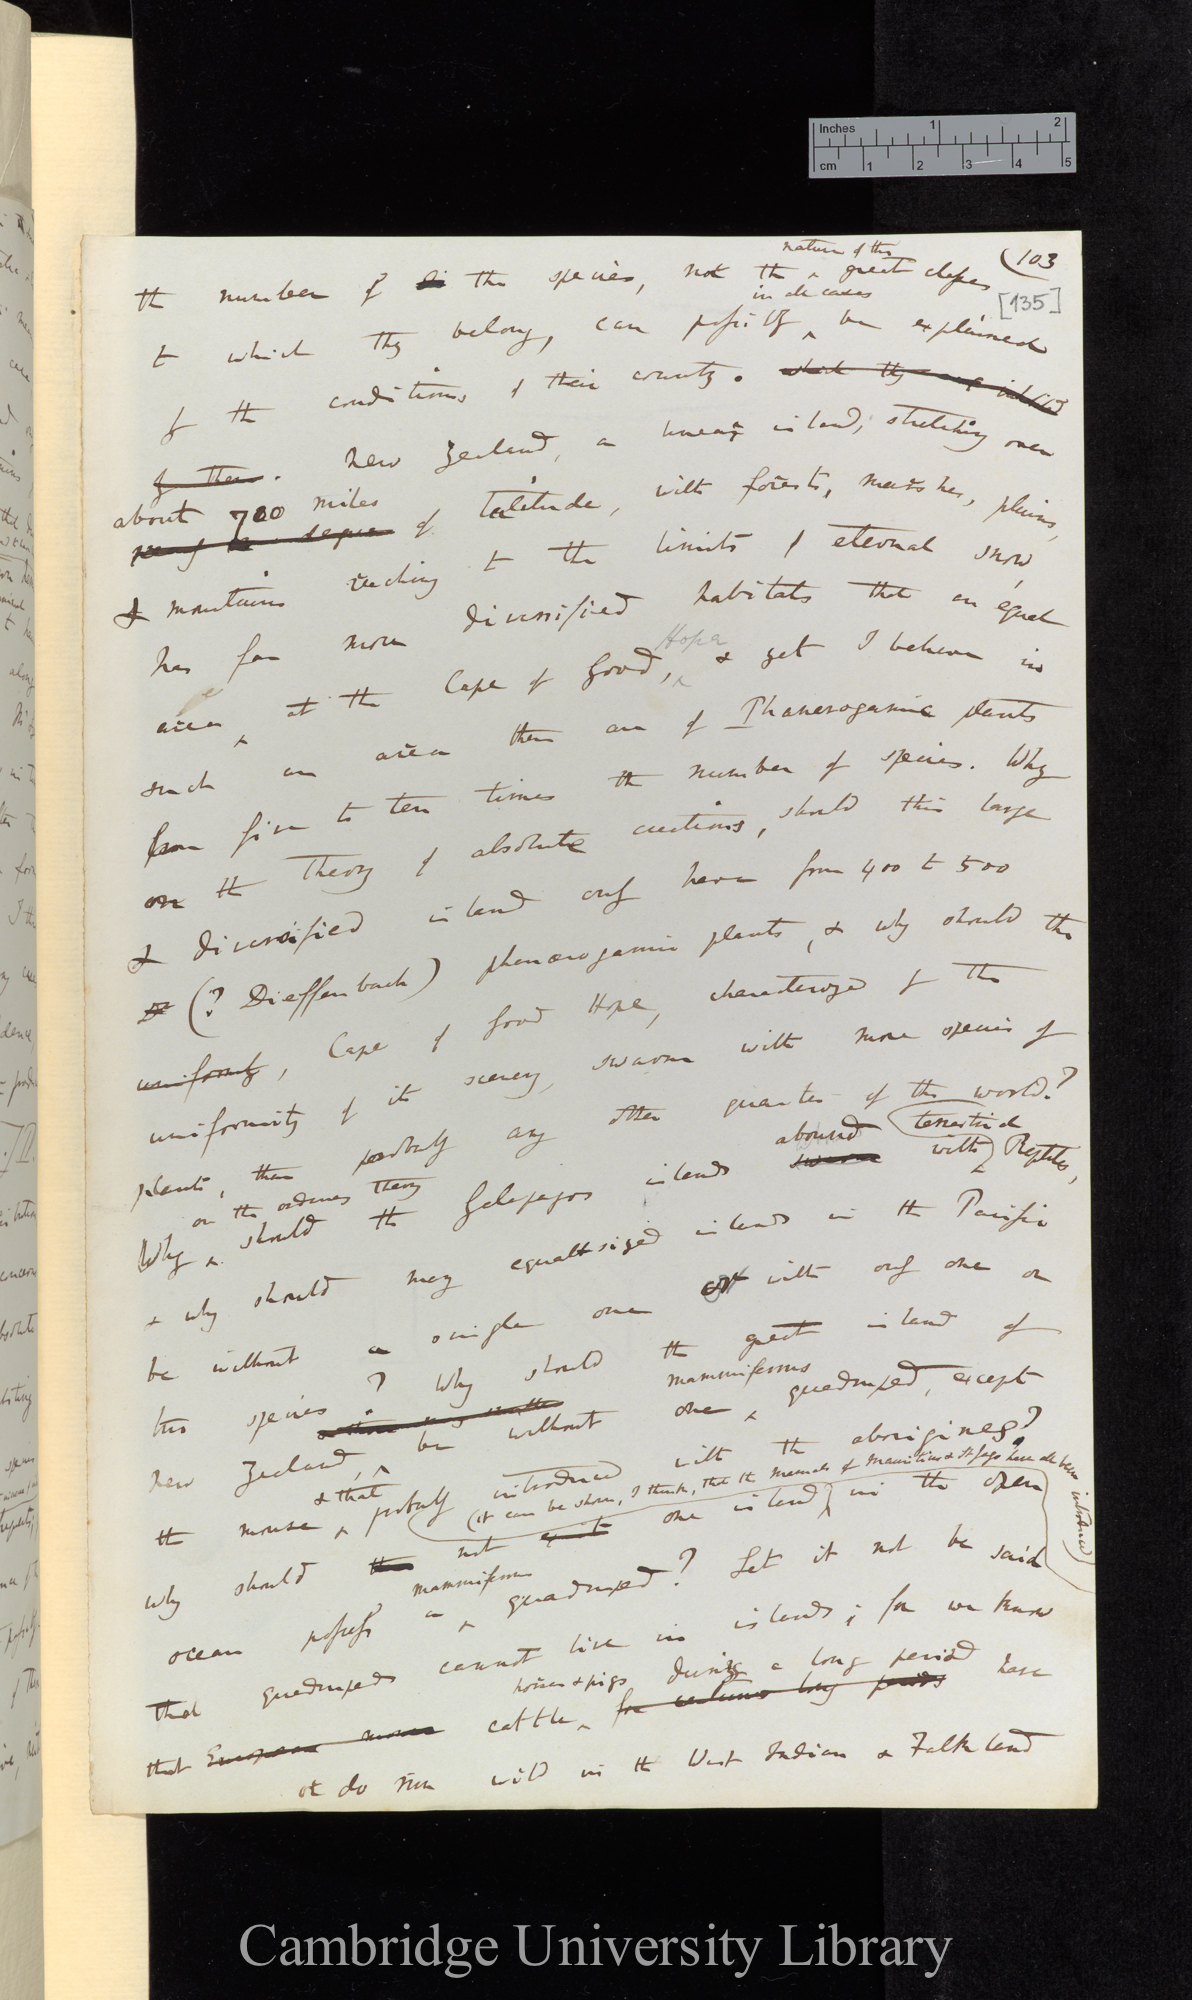 Inches 1 2
cm 1 2 3 4 5
(103
[135]
nature of the
the number of the species, nor the ^ great classes
in all cases
to which they belong, can possibly ^ be explained
by the conditions of their country. which they are inhabited
by them. New Zealand, a linear island, stretching over
about 700 miles
of latitude, with forests, marshes, plains,
& mountains reaching to the limits of eternal snow,
has far more diversified habitats than an equal
Hope
area ^ at the Cape of Good, ^ & yet I believe in
such an area there are of Phanerogamic plants
from five to ten times the number of species. Why
on the theory of absolute creations, should this large
& diversified island only have from 400 to 500
(? Dieffenbach) phanerogamic plants, & why should the
uniformity, Cape of Good Hope, characterized by the
uniformity of its scenery, swarm with more species of
plants, than probably any other quarter of the world?
on the ordinary theory
abound
terrestrial
Why ^ should the Galapagos islands swarm with ^ Reptiles,
& why should many equal-sized islands in the Pacific
be without a single one or with only one or
two species? Why should the great island of
mammiferous
New Zealand, ^ be without one ^ quadruped, except
& that
the mouse, ^ probably introduced with the aborigines?
(it can be shown, I think, that the mammals of Mauritius & St Jago have all been introduced)
why should not one island ^ in the open
mammiferous
ocean possess a ^ quadruped? Let it not be said
that quadrupeds cannot live in islands; for we know
horses & pigs during a long period have
that European cattle, ^ for long periods
or do run wild in the West Indian & Falkland
Cambridge University Library